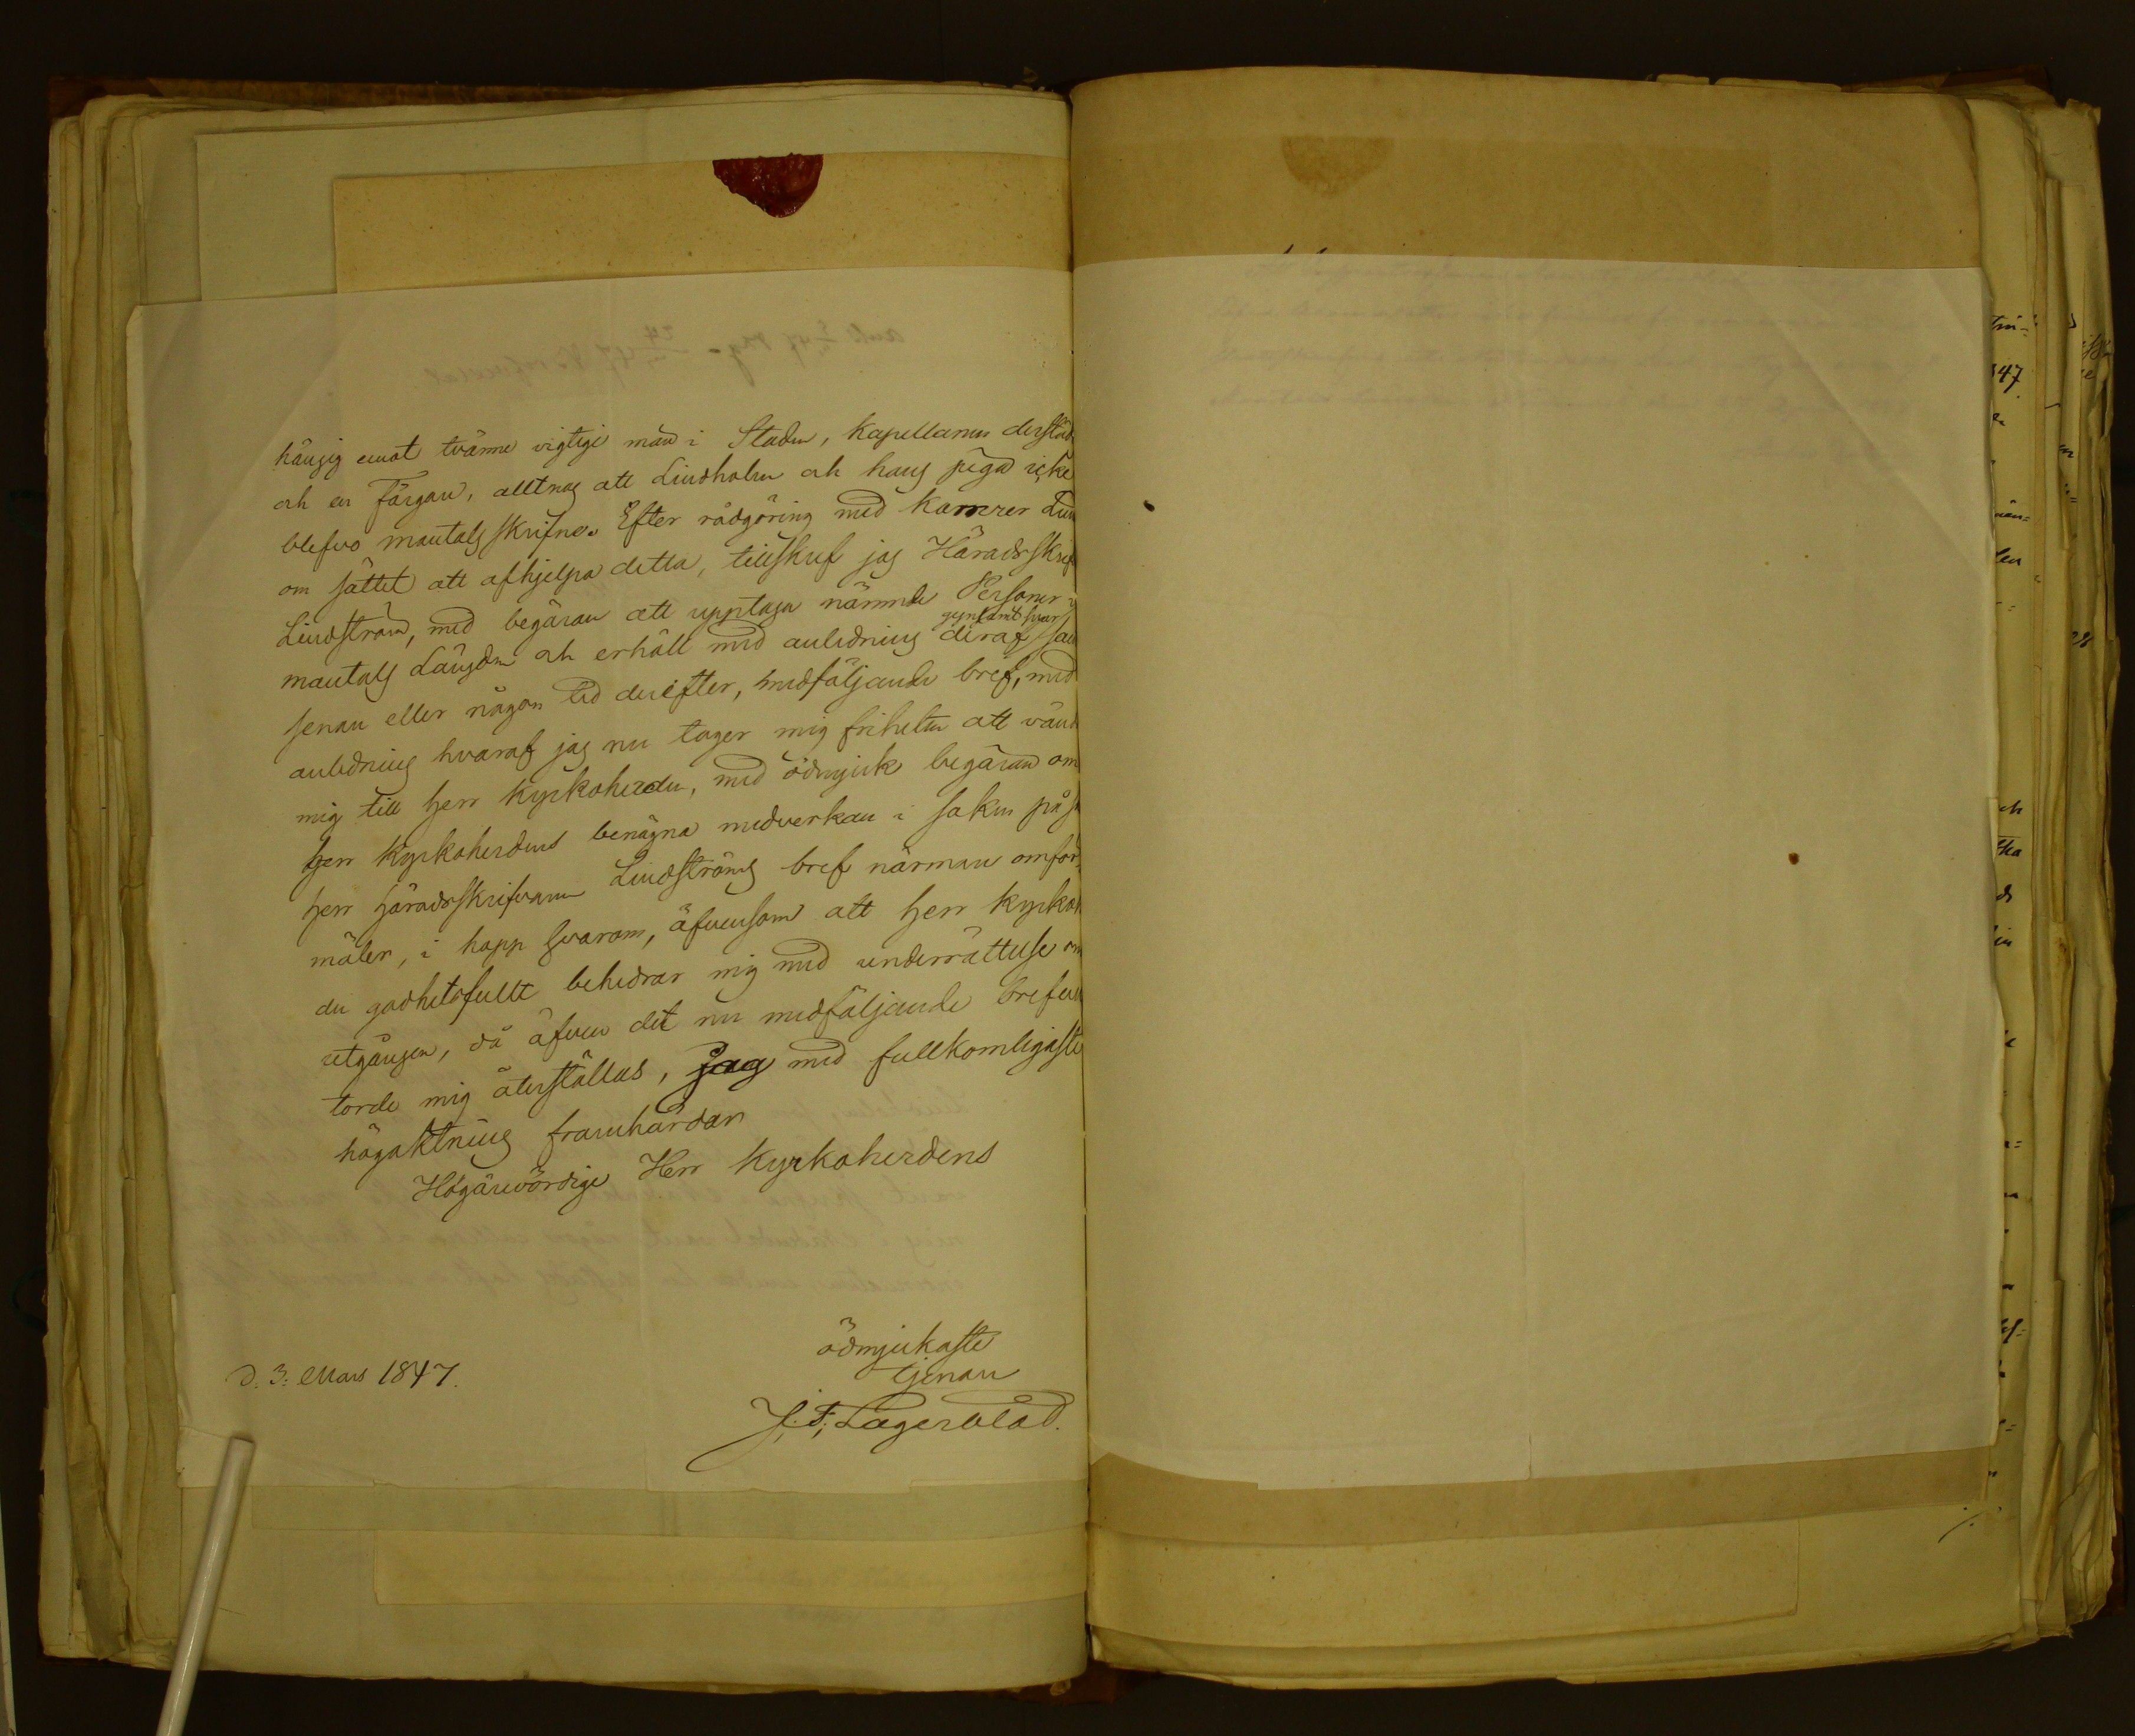 hängig emot tvänne vigtige män i Staden, Kapellanen derstäd
och en Färgare, alltnog att Lindholm och hans piga icke
blefvo mantalsskrifne. Efter rådgöring med Kamrer Lin
om sättet att afhjelpa detta, tillskref jag Häradsskrif
Lindström, med begäran att upptaga nämnde Personer i
mantals Längden och erhöll med anledning deraf
senan eller någon tid derefter, medföljande bref, med
anledning hvaraf jag nu tager mig friheten att vänd
mig till Herr Kyrkoherden, med ödmjuk begäran om
Herr Kyrkoherdens benägna medverkan i saken på s
Herr Häradsskrifvaren Lindströms bref närmare omför
mäler, i hopp hvarom, äfvensom att Herr Kyrkoh
den godhetsfullt behedrar mig med underrättelse om
utgången, då äfven det nu medföljande brefvet
torde mig återställas, Jag med fullkomligaste
högaktning framhärdar
Högärevördige Herr Kyrkoherdens
ödmjukaste
tjenare
J. F. Lagerblad.
D. 3: Mars 1847.